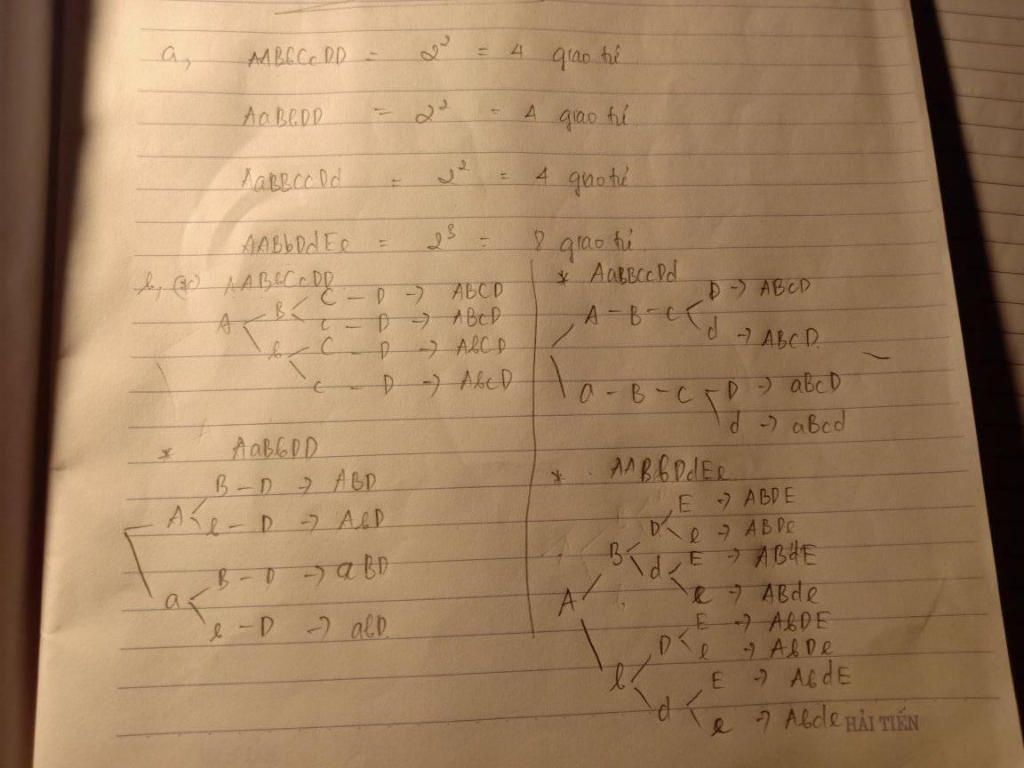 a, AABbCcDD = 2² = 4 giao tử
AaBbDD = 2² = 4 giao tử
AaBBccDd = 2² = 4 giao tử
AABbDdEe = 2³ = 8 giao tử
b, (*) AABbCcDD
A B C - D → ABCD
c - D → ABCD
b C - D → AbCD
c - D → AbcD
* AaBbDD
A B - D → ABD
b - D → AbD
a B - D → aBD
b - D → abD
* AaBBccDd
A - B - C D → ABCD
d → ABCD
a - B - C D → aBcD
d → aBcd
* AABbDdEe
A B D E → ABDE
e → ABDe
d E → ABdE
e → ABde
b D E → AbDE
e → AbDe
d E → AbdE
e → Abde
HẢI TIẾN